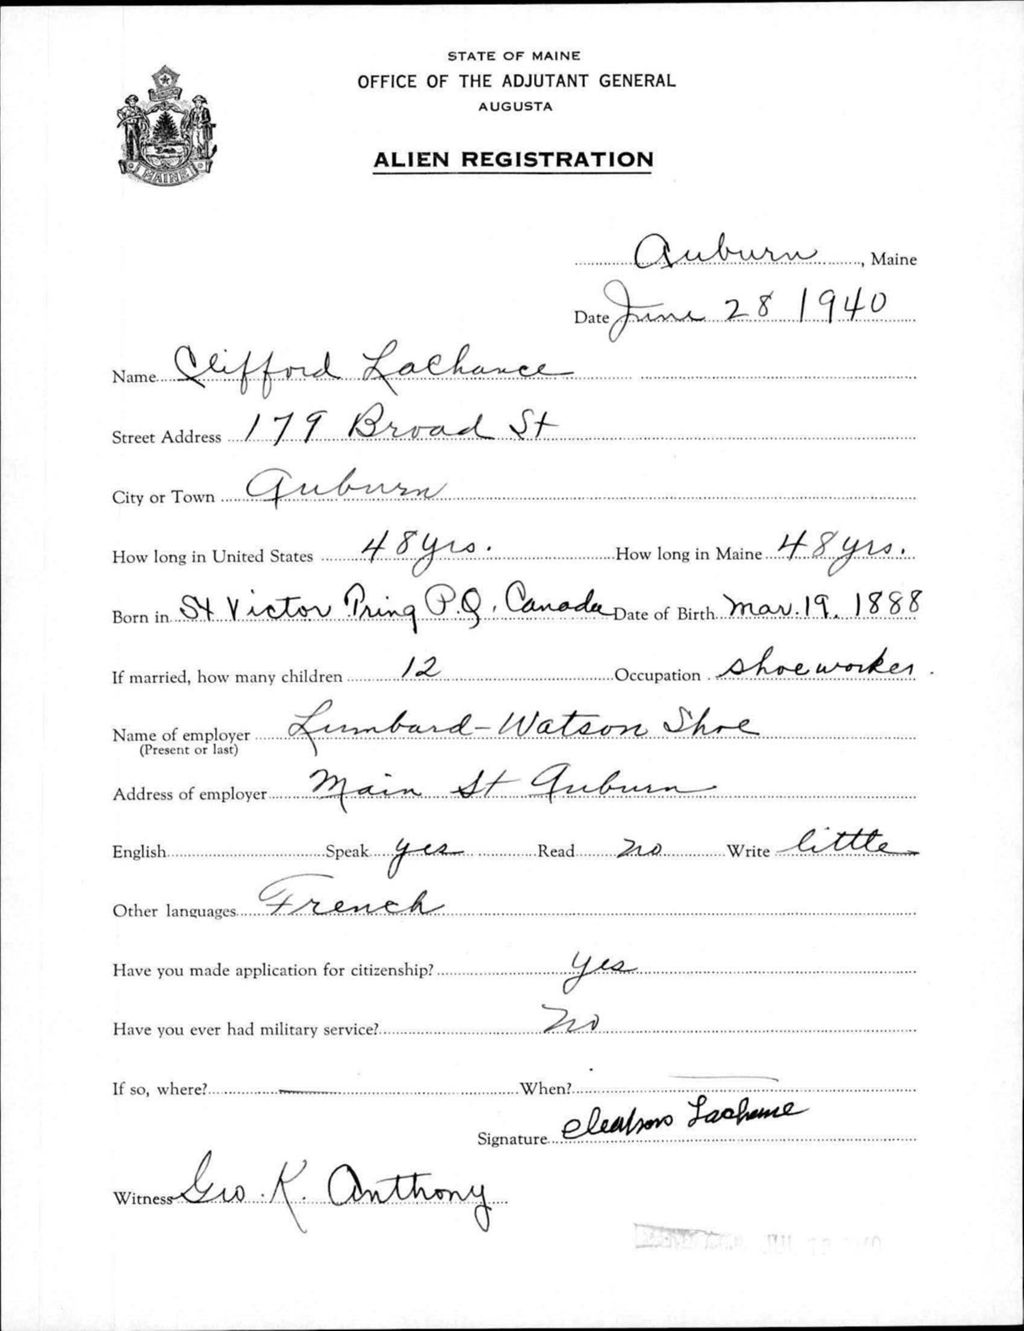 STATE OF MAINE
OFFICE OF THE ADJUTANT GENERAL
AUGUSTA
ALIEN REGISTRATION
MAINE
Auburn, Maine
Date June 28 1940
Name Clifford LaChance
Street Address 179 Broad St
City or Town Auburn
How long in United States 48 yrs. How long in Maine 48 yrs.
Born in St Victor Tring P.Q. Canada Date of Birth Mar. 19, 1888
If married, how many children 12 Occupation shoeworker
Name of employer Lumbard-Watson Shoe
(Present or last)
Address of employer Main St Auburn
English Speak yes Read no Write little
Other languages French
Have you made application for citizenship? yes
Have you ever had military service? no
If so, where? — When? —
Signature Lachance
Witness Geo. K. Anthony